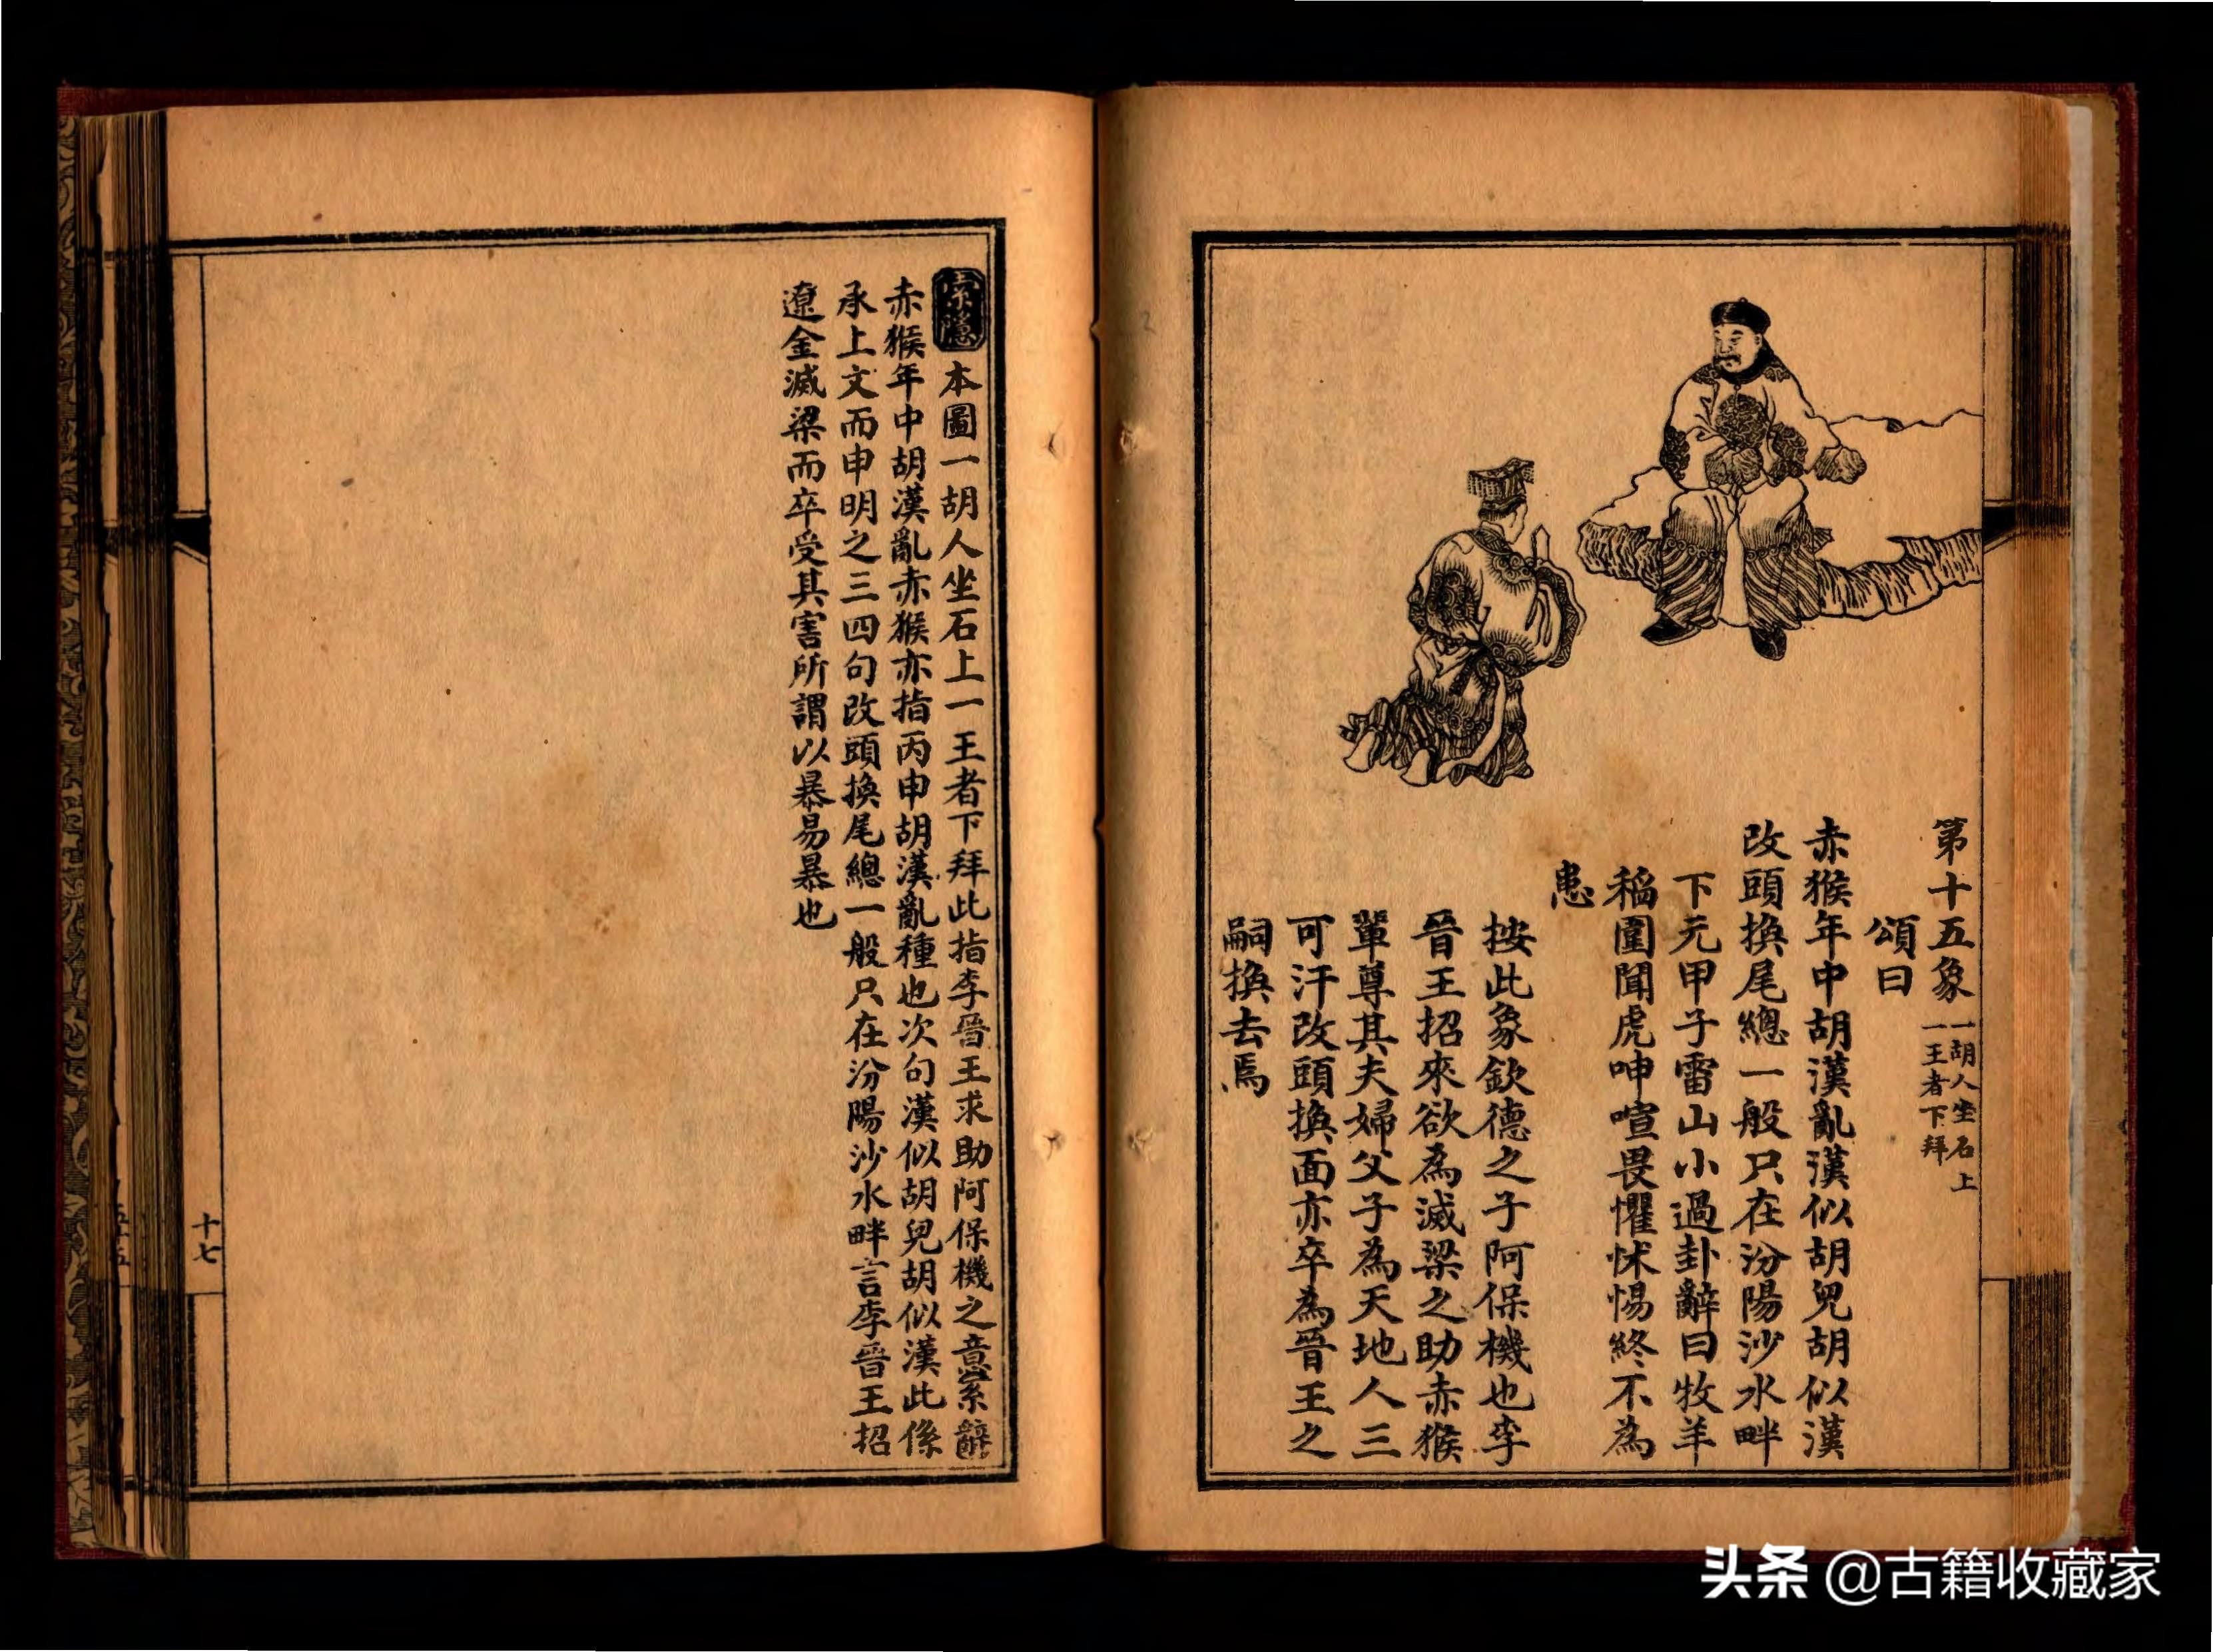 第十五象
一胡人坐石上
一王者下拜
頌曰
赤猴年中胡漢亂漢似胡兒胡似漢
改頭換尾總一般只在汾陽沙水畔
下元甲子雷山小過卦辭曰牧羊
稲圍聞虎呻喧畏懼怵惕終不為
患
按此象欽德之子阿保機也李
晉王招來欲為滅梁之助赤猴
輩尊其夫婦父子為天地人三
可汗改頭換面亦卒為晉王之
嗣換去焉
索隱
本圖一胡人坐石上一王者下拜此指李晉王求助阿保機之意案辭
赤猴年中胡漢亂赤猴亦指丙申胡漢亂種也次句漢似胡兒胡似漢此係
承上文而申明之三四句改頭換尾總一般只在汾陽沙水畔言李晉王招
遼金滅梁而卒受其害所謂以暴易暴也
十七
头条 @古籍收藏家